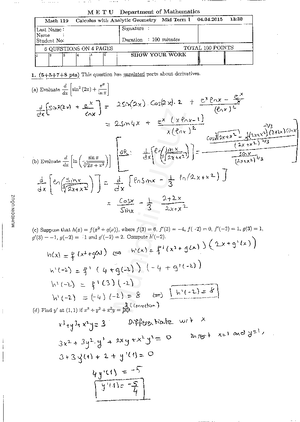 M E T U Department of Mathematics
Math 119 Calculus with Analytic Geometry Mid Term I 04.04.2015 13:30
Last Name :
Name :
Student No:
Signature :
Duration : 100 minutes
6 QUESTIONS ON 4 PAGES TOTAL 100 POINTS
SHOW YOUR WORK
1. (5+5+7+8 pts) This question has unrelated parts about derivatives.
(a) Evaluate d/dx [sin²(2x) + e^x/ln x]
d/dx [sin²(2x) + e^x/lnx] = 2sin(2x) cos(2x).2 + (e^x lnx - e^x/x)/(lnx)²
= 2sin4x + e^x (x lnx - 1)/x(lnx)²
(b) Evaluate d/dx [ln(sin x/∛(2x+x²))]
OR:
d/dx [ln(sinx/∛(2x+x²))] = d/dx [ln sinx - 1/3 ln(2x+x²)]
= cosx/sinx - 1/3 (2+2x)/(2x+x²)
(c) Suppose that h(x) = f(x² + g(x)), where f(3) = 8, f'(3) = -4, f(-2) = 0, f'(-2) = 1, g(3) = 1,
g'(3) = -1, g(-2) = -1 and g'(-2) = 2. Compute h'(-2).
h(x) = f(x²+g(x)) ⇒ h'(x) = f'(x²+g(x)) (2x+g'(x))
h'(-2) = f'(4+g(-2)) (-4+g'(-2))
h'(-2) = f'(3) (-2)
h'(-2) = (-4)(-2) = 8 ⇒ h'(-2) = 8
(d) Find y' at (1,1) if x³ + y³ + x²y = 3 (correction)
x³+y³+x²y=3 Differentiate wrt x
3x² + 3y².y' + 2xy + x²y' = 0 insert x=1 and y=1,
3+3y'(1)+2+y'(1)=0
4y'(1) = -5
y'(1) = -5/4